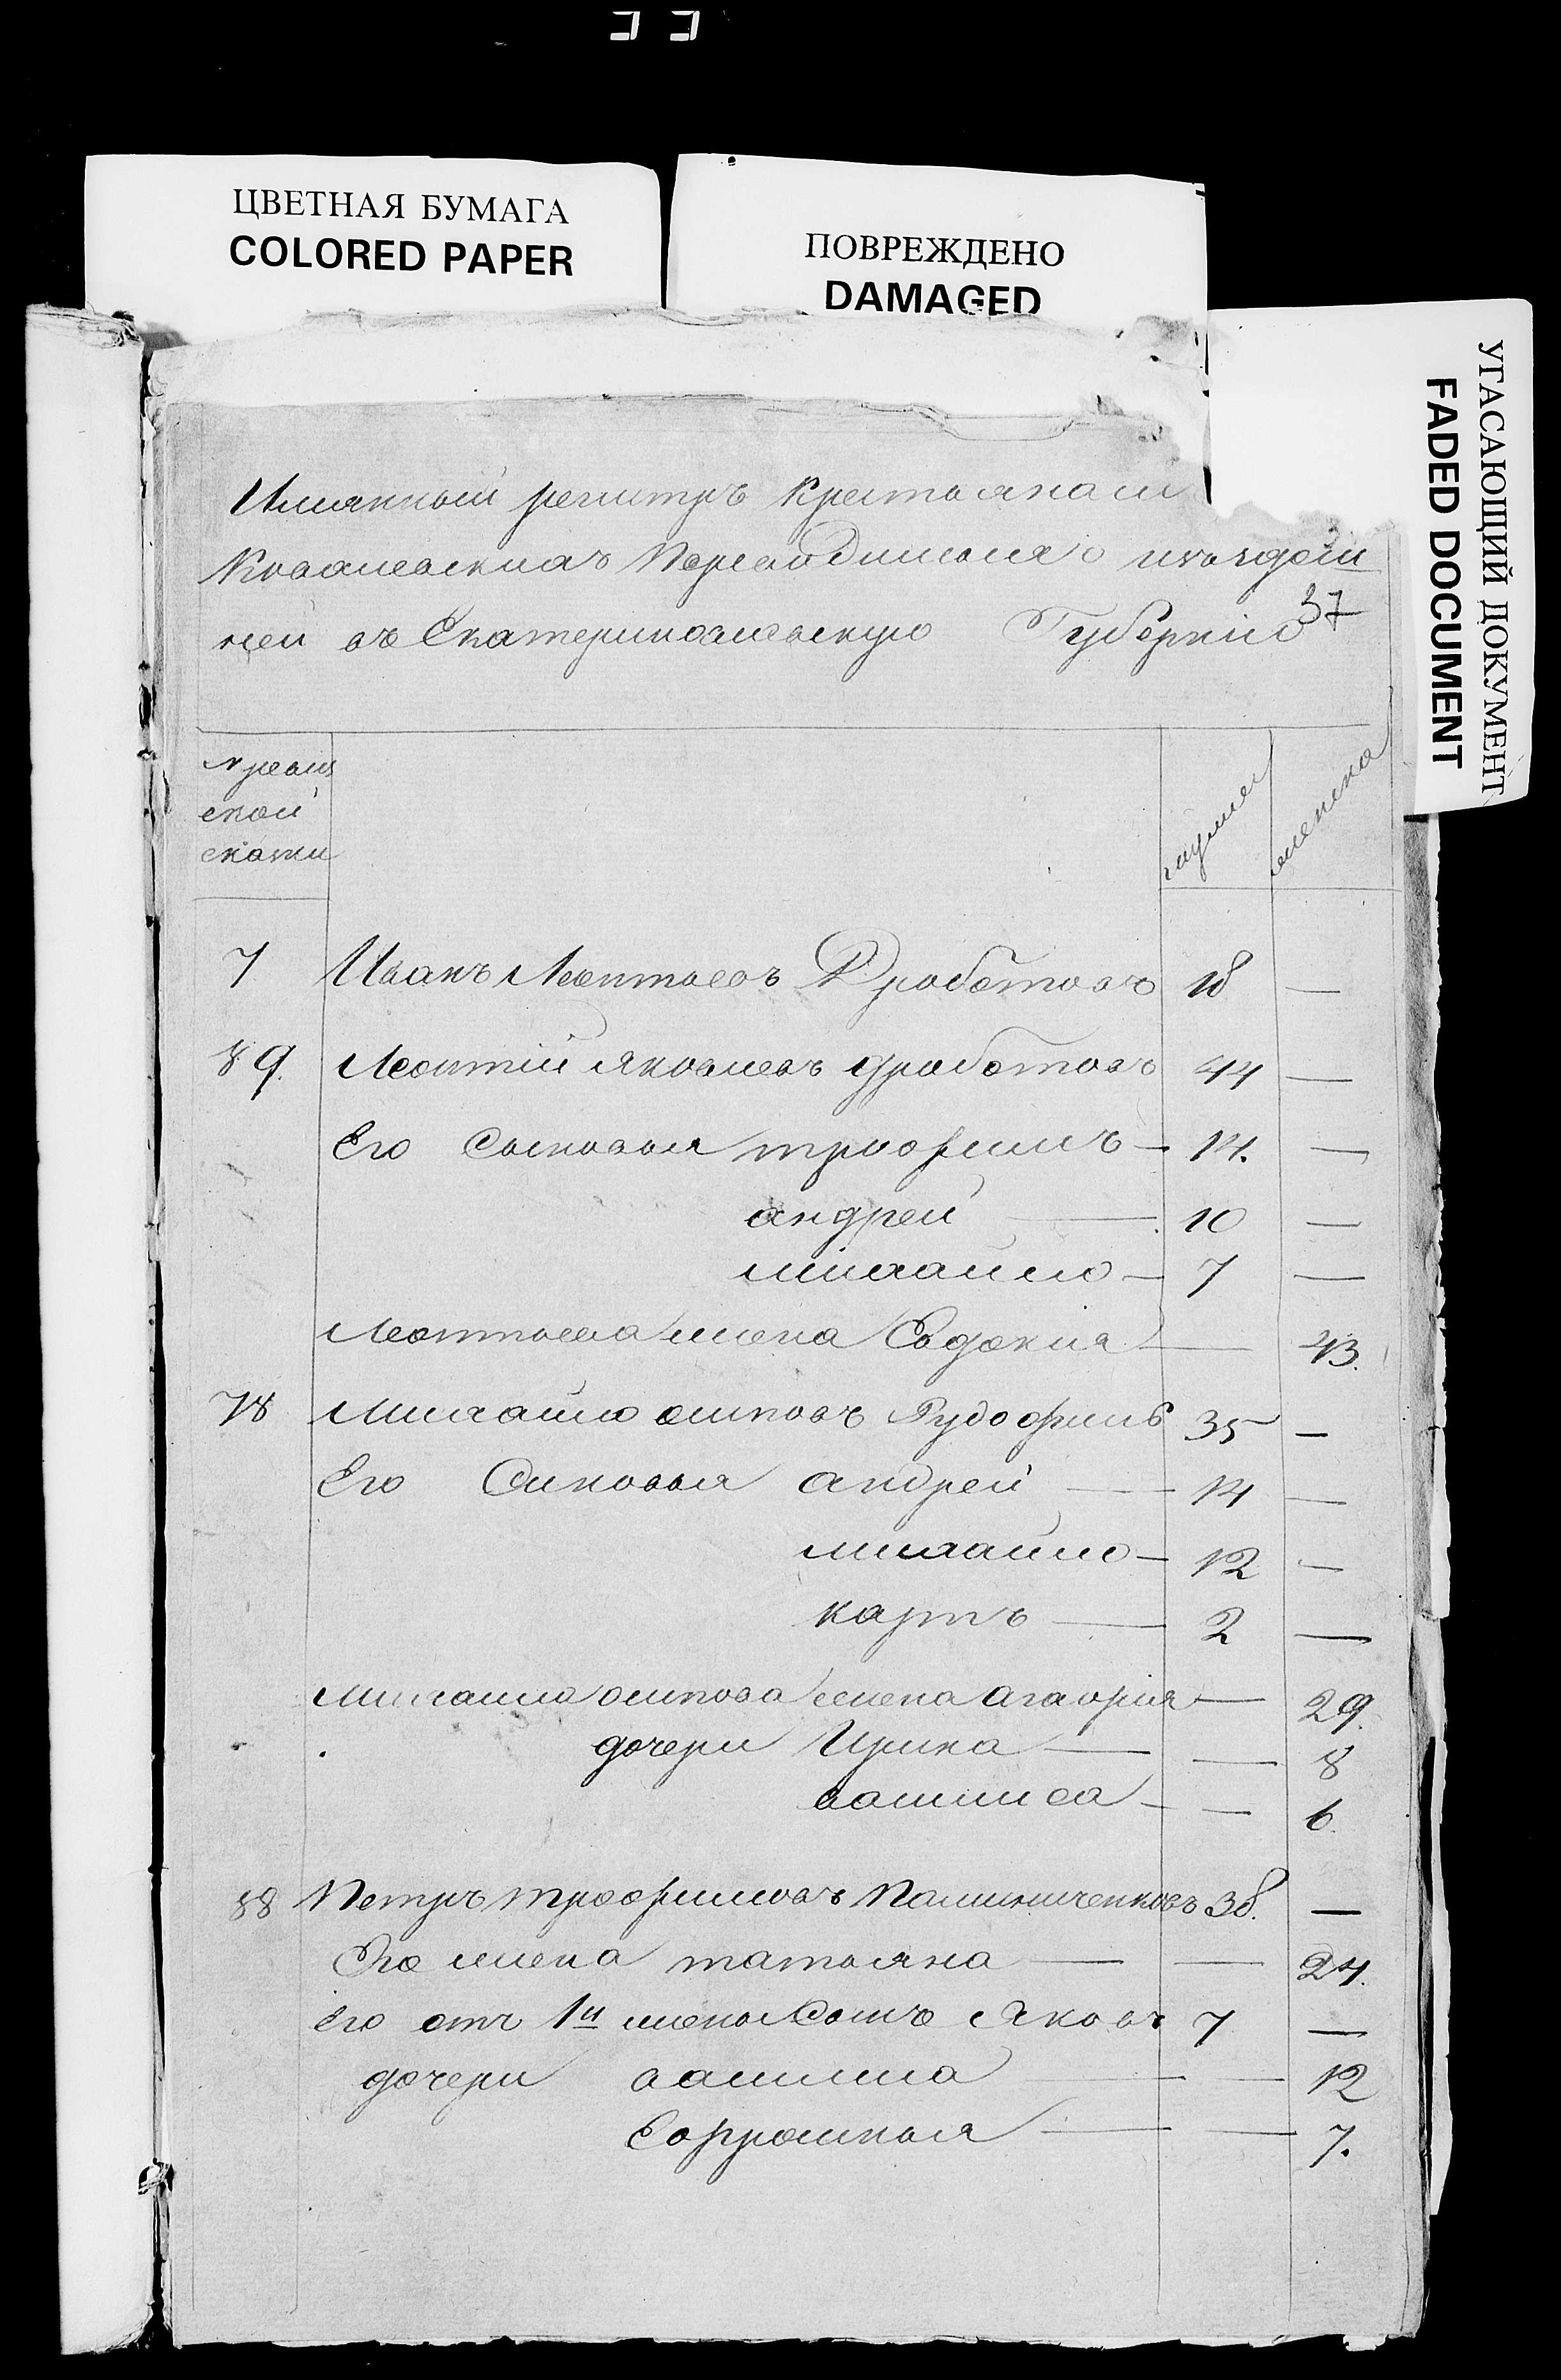 ЦВЕТНАЯ БУМАГА
COLORED PAPER
ПОВРЕЖДЕНО
DAMAGED
УГАСАЮЩИЙ ДОКУМЕНТ
FADED DOCUMENT
Имянной регистръ Крестьянам
Ковалевскихъ
ней въ Екатеринославскую Губернію
37
ской
сказки
7 Иванъ Леонтьевъ Дроботовъ 18 —
89. Леонтій Яковлевъ дроботовъ 44 —
Его Сыновья трофимъ — 14. —
андрей — 10 —
михайло — 7 —
Леонтьева жена Евдокия — 43.
78 Михайло осиповъ 35 —
Его Синовья андрей — 14 —
михайло — 12 —
карпъ — 2 —
Михайла осипова жена агафия — 29.
дочери Ирина — — 8
васииса — — 6.
88 Петръ трофимовъ Калиниченковъ 38. —
Его жена татьяна — — 24.
Его отъ 1й жены Сынъ Яковъ 7 —
дочери — — 12
Ефросинья — — 7.